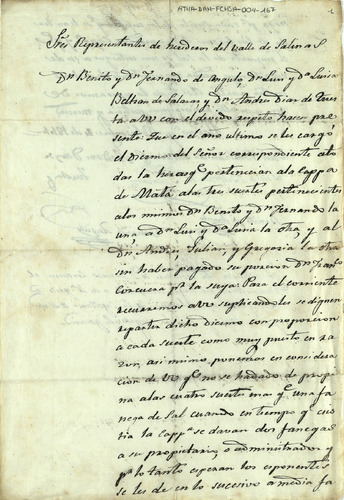 ATHA-DAH-FCHSA-004-167
Sres Representantes de herederos del Valle de Salinas
Dn. Benito y Dn. Fernando de Angulo, Dn. Luis y Da. Luisa
Beltran de Salazar y Dn. Andres Diaz de
a VV con el devido respeto hacen pre
sente: Que en el año ultimo se les cargó
el Diezmo del Señor correspondiente a to
das la heras qe. pertenecian a la Cappa. de
Mata a las tres suertes pertenecientes
a los mismos Dn. Benito y Dn. Fernando la
una, a Dn. Luis y Da. Luisa la otra, y al
Dn. Andres, Julian, y Gregoria la otra
sin haber pagado su porcion Dn. Franco.
Corcuera pr. la suya: Para el corriente
recurrimos a VV suplicandoles se dignen
repartir dicho diezmo con proporcion
a cada suerte como muy puesto en ra
zon, asi mismo ponemos en considera
cion de VV qe. no se ha dado de propi
na a las cuatro suertes mas qe. una fa
nega de Sal cuando en tiempo qe. exis
tia la Cappa. se davan dos fanegas
a su propietario, o administrador, y
pr. lo tanto esperan los esponentes
se les de en lo sucesivo a media fa